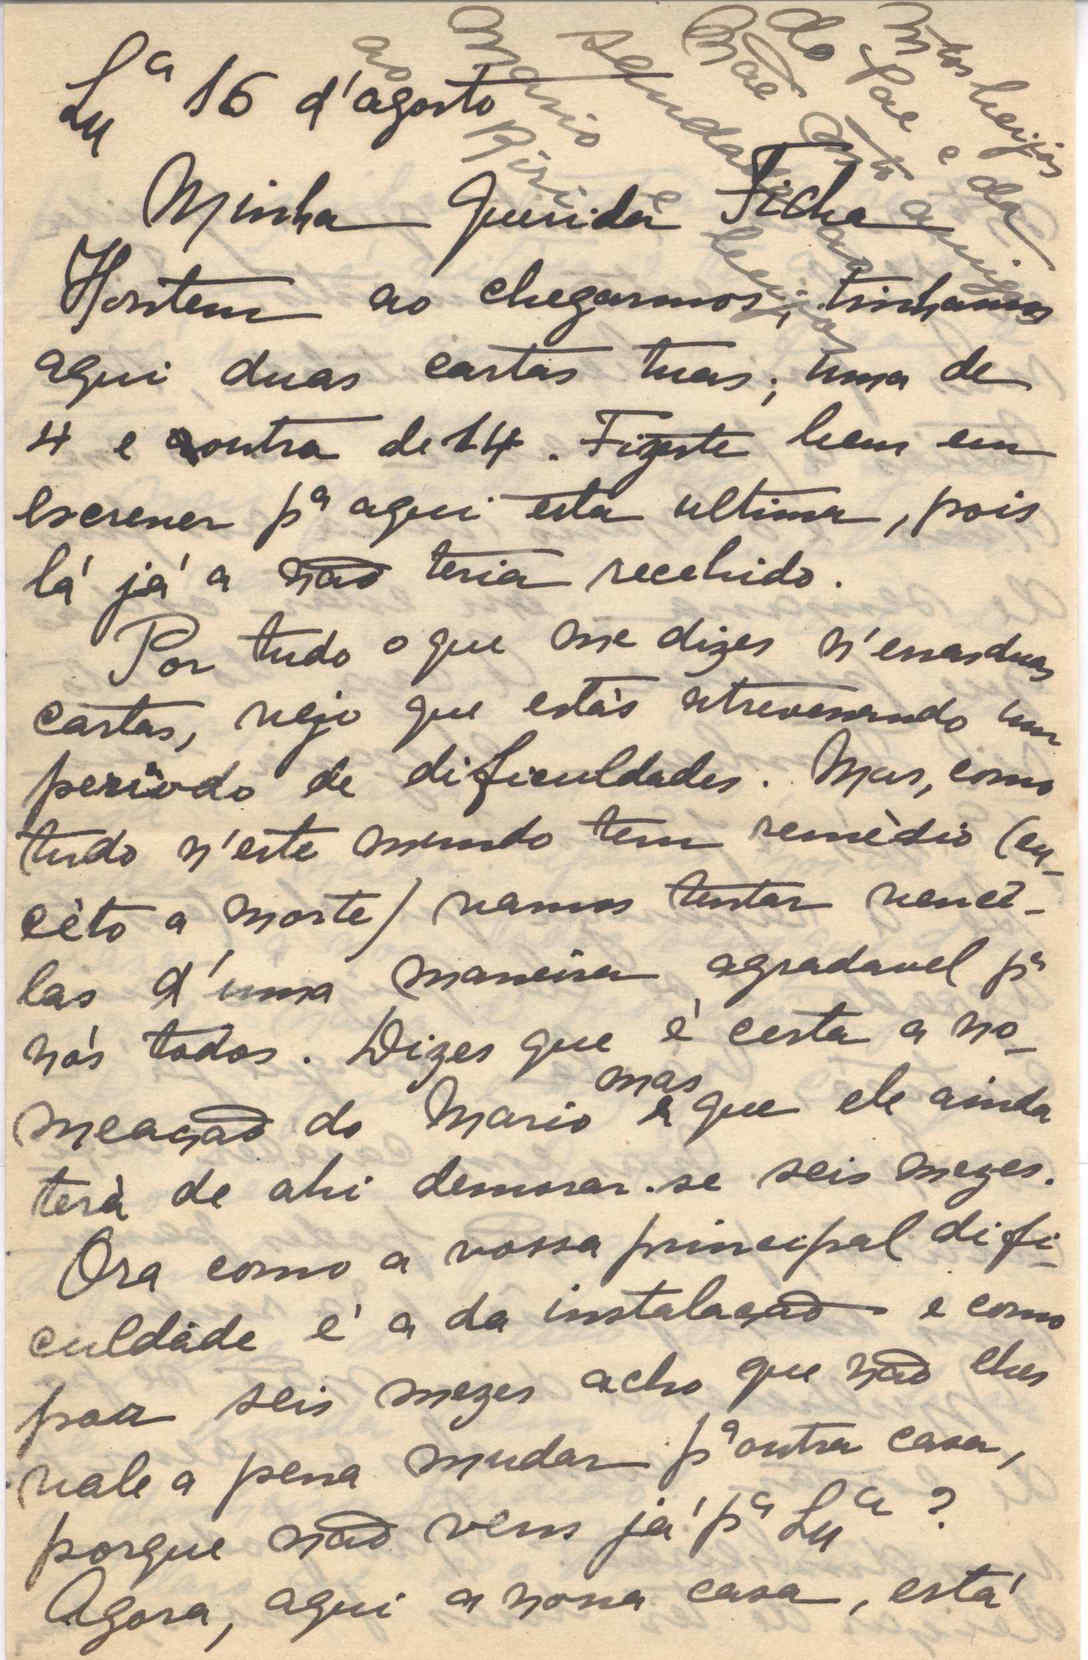 Lxª 16 d'agosto
Minha querida Ticha
Hontem ao chegarmos, tinhamos
aqui duas cartas tuas; uma de
4 e outra de 14. Fizeste bem em
escrever pª aqui esta ultima, pois
lá já a não teria recebido.
Por tudo o que me dizes n'essas duas
cartas, vejo que estás atravessando um
periodo de dificuldades. Mas, como
tudo n'este mundo tem remèdio (ex-
cèto a morte) vamos tentar vencê-
las d'uma maneira agradavel pª
nós todos. Dizes que é certa a no-
meação do Mario mas que ele ainda
terà de ahi demorar-se seis mezes.
Ora como a vossa principal difi-
culdade é a da instalação e como
para seis mezes acho que não lhes
vale a pena mudar pª outra casa,
porque não vens já pª Lxª ?
Agora, aqui a nossa casa, está
Mtos beijos
do Pae e da
Mãe mto amiga
saudades ao
Mario e beijos
ao Riri